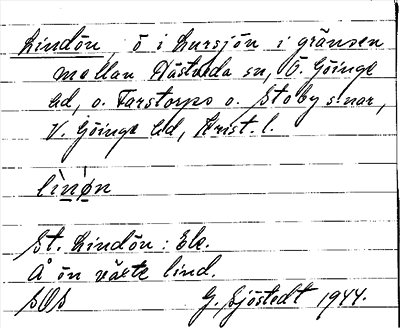 Lindön, ö i Lursjön i gränsen
mellan Hästveda sn, Ö. Göinge
hd, o. Farstorps o. Stoby snar,
V. Göinge hd, Krist. l.
lìnǿn
St. Lindön: Ek.
Å ön växte lind.
G. Sjöstedt 1944.